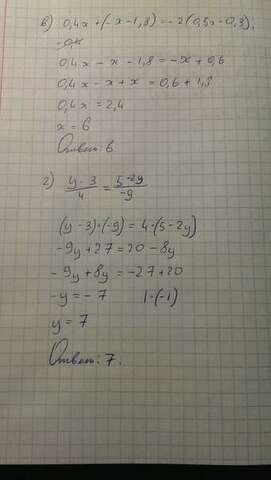 в) 0,4x+(-x-1,8)=-2(0,5x-0,3),
0,4x-x-1,8=-x+0,6
0,4x-x+x=0,6+1,8
0,4x=2,4
x=6
Ответ: 6
г) (y-3)/4 = (5-2y)/-9
(y-3)·(-9)=4·(5-2y)
-9y+27=20-8y
-9y+8y=-27+20
-y=-7 |·(-1)
y=7
Ответ: 7.